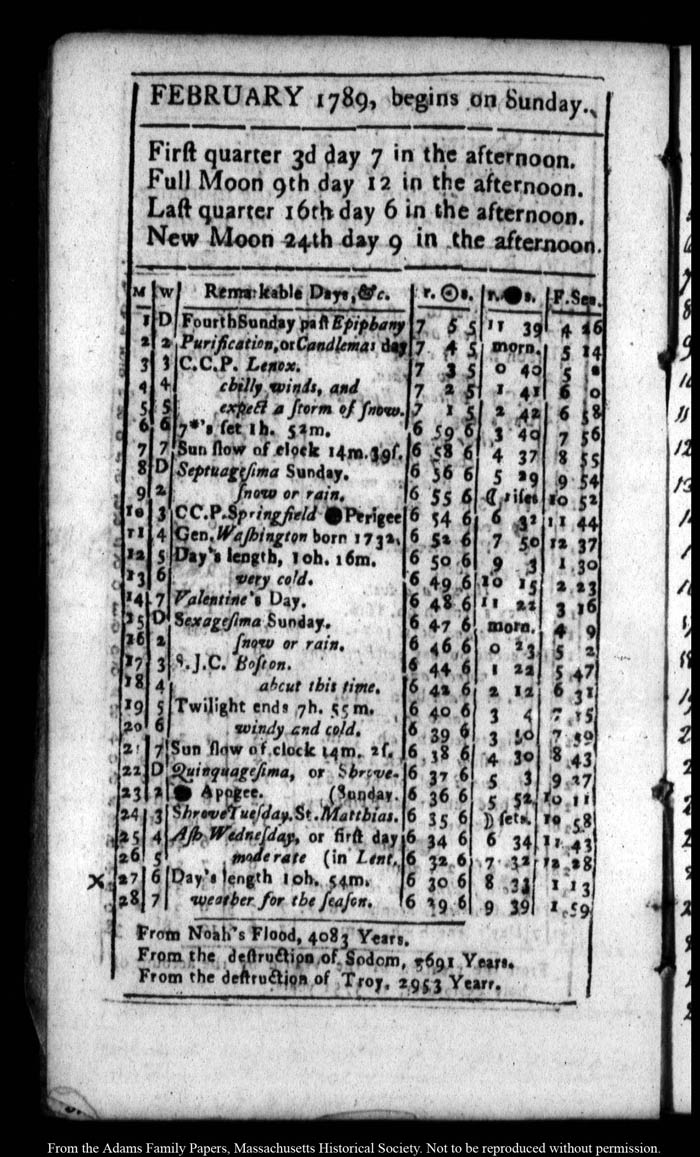 FEBRUARY 1789, begins on Sunday.
Firſt quarter 3d day 7 in the afternoon.
Full Moon 9th day 12 in the afternoon.
Laſt quarter 16th day 6 in the afternoon.
New Moon 24th day 9 in the afternoon.
M W Remarkable Days, &c. r. ☉ s. r. ● s. F. Sea.
1 D Fourth Sunday paſt Epiphany 7 5 5 11 39 4 26
2 2 Purification, or Candlemas day 7 4 5 morn. 5 14
3 3 C.C.P. Lenox. 7 3 5 0 40 5
4 4 chilly winds, and 7 2 5 1 41 6 0
5 5 expect a ſtorm of ſnow. 7 1 5 2 42 6 58
6 6 7*'s ſet 1h. 52m. 6 59 6 3 40 7 56
7 7 Sun ſlow of clock 14m. 39ſ. 6 58 6 4 37 8 55
8 D Septuageſima Sunday. 6 56 6 5 29 9 54
9 2 ſnow or rain. 6 55 6 ☾ riſes 10 52
10 3 CC.P. Springfield ● Perigee 6 54 6 6 32 11 44
11 4 Gen. Waſhington born 1732. 6 52 6 7 50 12 37
12 5 Day's length, 10h. 16m. 6 50 6 9 3 1 30
13 6 very cold. 6 49 6 10 15 2 23
14 7 Valentine's Day. 6 48 6 11 22 3 16
15 D Sexageſima Sunday. 6 47 6 morn. 4 9
16 2 ſnow or rain. 6 46 6 0 23 5 2
17 3 S.J.C. Boſton. 6 44 6 1 22 5 47
18 4 about this time. 6 42 6 2 12 6 31
19 5 Twilight ends 7h. 55m. 6 40 6 3 4 7 15
20 6 windy and cold. 6 39 6 3 50 7 59
21 7 Sun ſlow of clock 14m. 2ſ. 6 38 6 4 30 8 43
22 D Quinquageſima, or Shrove- 6 37 6 5 3 9 27
23 2 ● Apogee. (Sunday. 6 36 6 5 52 10 11
24 3 Shrove Tueſday. St. Matthias. 6 35 6 ☽ ſets. 10 58
25 4 Aſh Wedneſday, or firſt day 6 34 6 6 34 11 43
26 5 moderate (in Lent. 6 32 6 7 32 12 28
x 27 6 Day's length 10h. 54m. 6 30 6 8 33 1 13
28 7 weather for the ſeaſon. 6 29 6 9 39 1 59
From Noah's Flood, 4083 Years.
From the deſtruction of Sodom, 3691 Years.
From the deſtruction of Troy, 2953 Years.
From the Adams Family Papers, Massachusetts Historical Society. Not to be reproduced without permission.